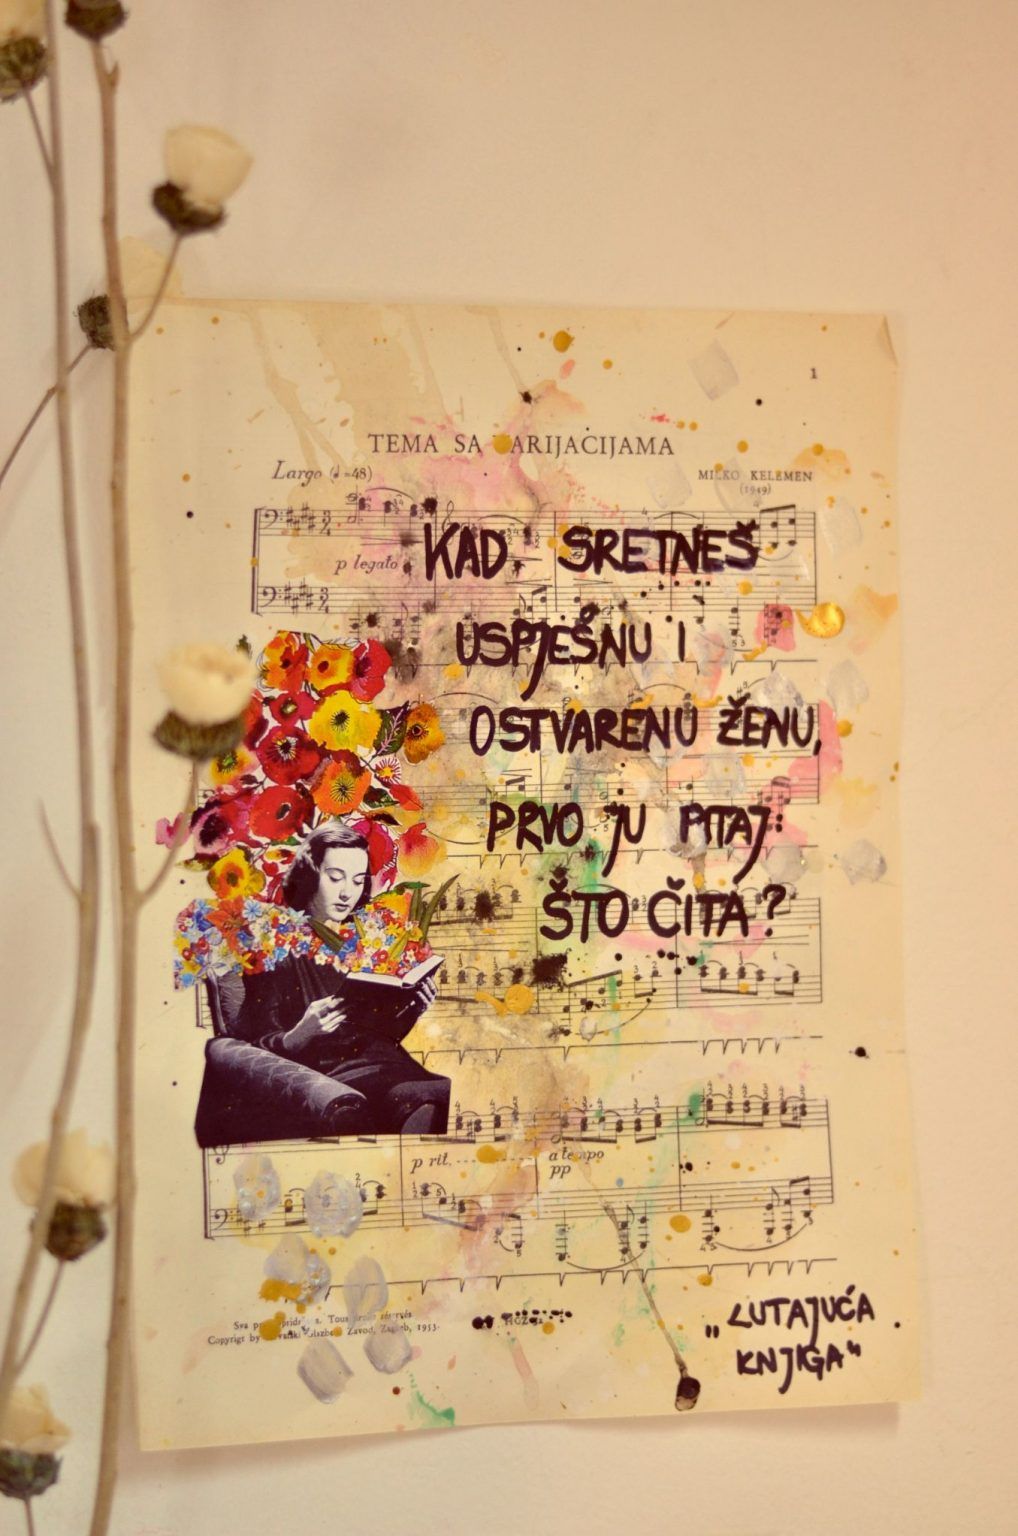 1
TEMA SA VARIJACIJAMA
Largo (♩=48)
MILKO KELEMEN
(1949)
p legato
KAD SRETNEŠ
USPJEŠNU I
OSTVARENU ŽENU,
PRVO JU PITAJ:
ŠTO ČITA?
p rit.
a tempo
pp
Sva Tous droits réservés
Copyrigt by Zavod, Zagreb, 1953.
„LUTAJUĆA
KNJIGA“